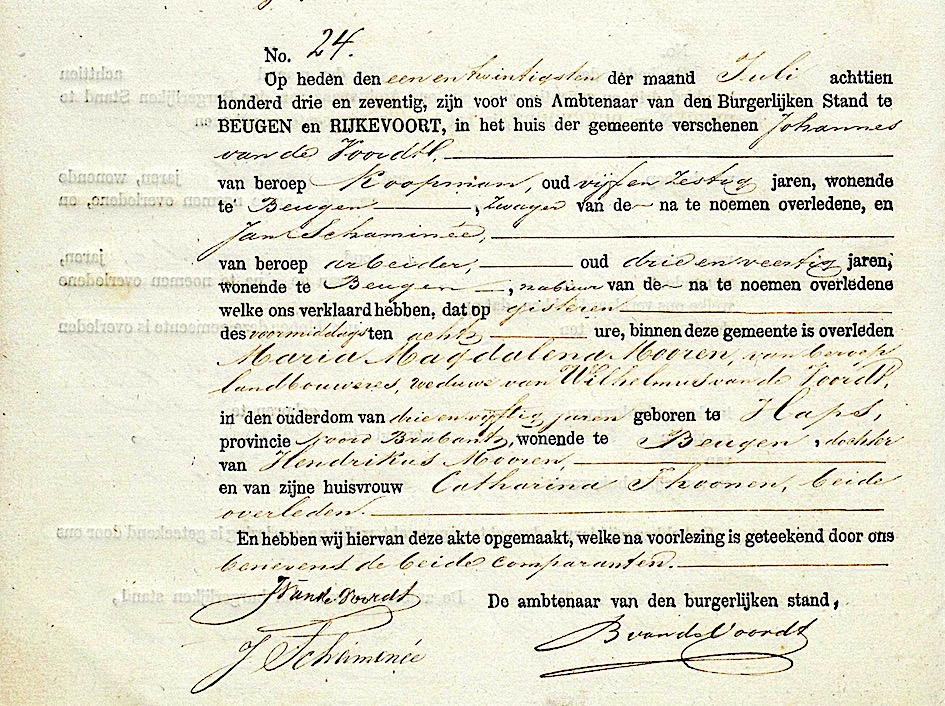 No. 24.
Op heden den een en twintigsten der maand Juli achttien
honderd drie en zeventig, zijn voor ons Ambtenaar van den Burgerlijken Stand te
BEUGEN en RIJKEVOORT, in het huis der gemeente verschenen Johannes
van de Voordt,
van beroep Koopman, oud vijf en zestig jaren, wonende
te Beugen, zwager van de na te noemen overledene, en
Jan Schaminée,
van beroep arbeider, oud drie en veertig jaren,
wonende te Beugen, nabuur van de na te noemen overledene
welke ons verklaard hebben, dat op gisteren
des voormiddags ten acht ure, binnen deze gemeente is overleden
Maria Magdalena Mooren, van beroep
landbouweres, weduwe van Wilhelmus van de Voordt,
in den ouderdom van drie en vijftig jaren geboren te Haps,
provincie Noord Brabant, wonende te Beugen, dochter
van Hendrikus Mooren,
en van zijne huisvrouw Catharina Thoonen, beide
overleden.
En hebben wij hiervan deze akte opgemaakt, welke na voorlezing is geteekend door ons
benevens de beide comparanten.
JVande Voordt
De ambtenaar van den burgerlijken stand,
J Schaminée
B vandeVoordt